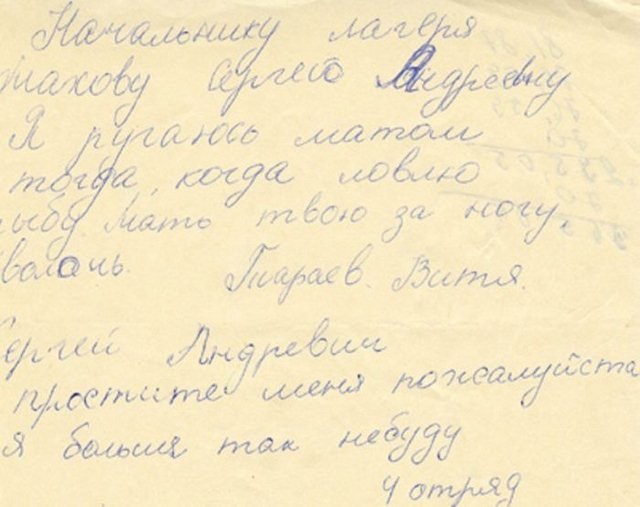 Начальнику лагеря
Сергею Андревну
Я ругаюсь матом
тогда, когда ловлю
рыбу. Мать твою за ногу,
сволочь. Тараев. Витя.
Сергей Андревич
простите меня пожалуйста
я больше так небуду
4 отряд